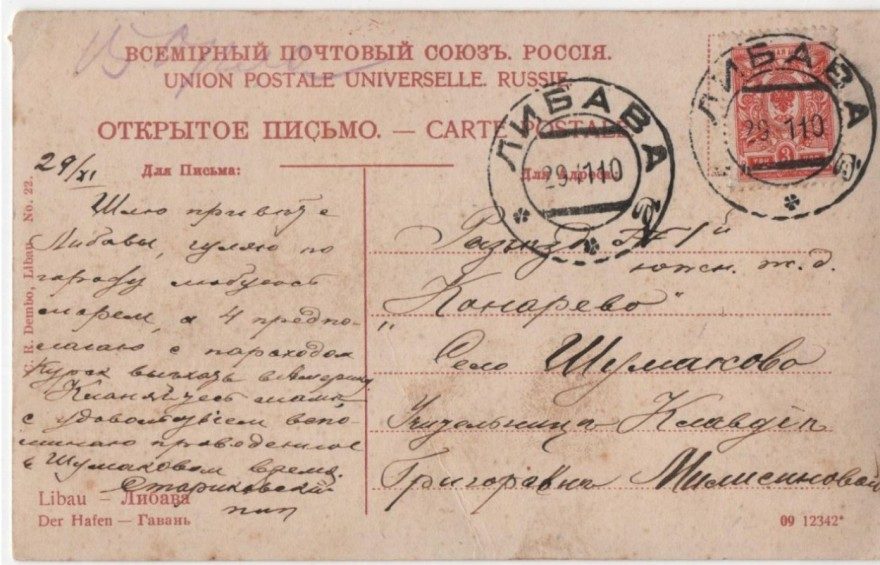 ВСЕМІРНЫЙ ПОЧТОВЫЙ СОЮЗЪ. РОССІЯ.
UNION POSTALE UNIVERSELLE. RUSSIE
ОТКРЫТОЕ ПИСЬМО. — CARTE POSTALE
ЛИБАВА
29 11 10
ЛИБАВА
29 11 10
Для Письма:
Для Адреса:
29/XI
Шлю привѣтъ с
Либавы, гуляю по
городу любуюсь
морем, а 4 предпо-
лагаю с параходом
Курск выехать в Америку
с удовольствием вспо-
минаю проведенное
в Шумаковом время
Libau – Либава
Der Hafen — Гавань
C. R. Dembo, Libau, No. 22.
Разъѣздъ № 1й
южн. ж. д.
„Конарево"
Село Шумаково
Учительница Клавдіи
Григорьевна
09 12342*